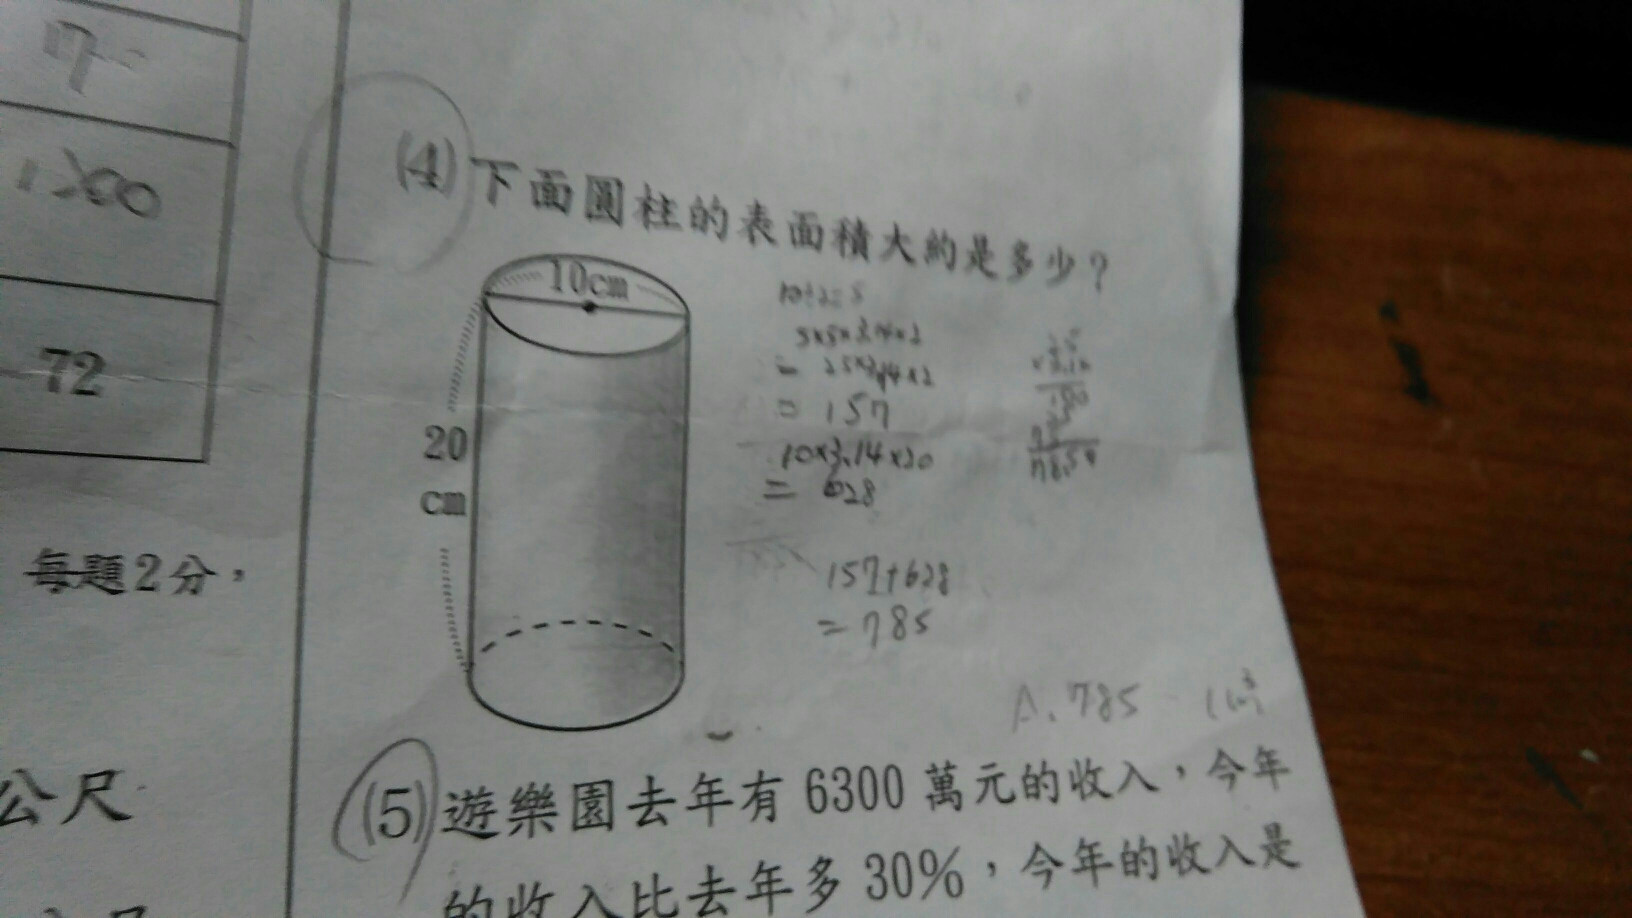 1200
72
每題2分，
公尺
(4)下面圓柱的表面積大約是多少？
10cm
20
cm
10÷2=5
5×5×3.14×2
= 25×3.14×2
= 157
10×3.14×20
= 628
157+628
=785
A.785
(5)遊樂園去年有6300萬元的收入，今年
的收入比去年多30%，今年的收入是